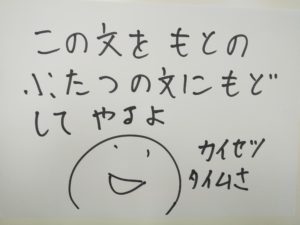 この文を もとの
ふたつの文にもど
して やるよ
カイセツ
タイムさ